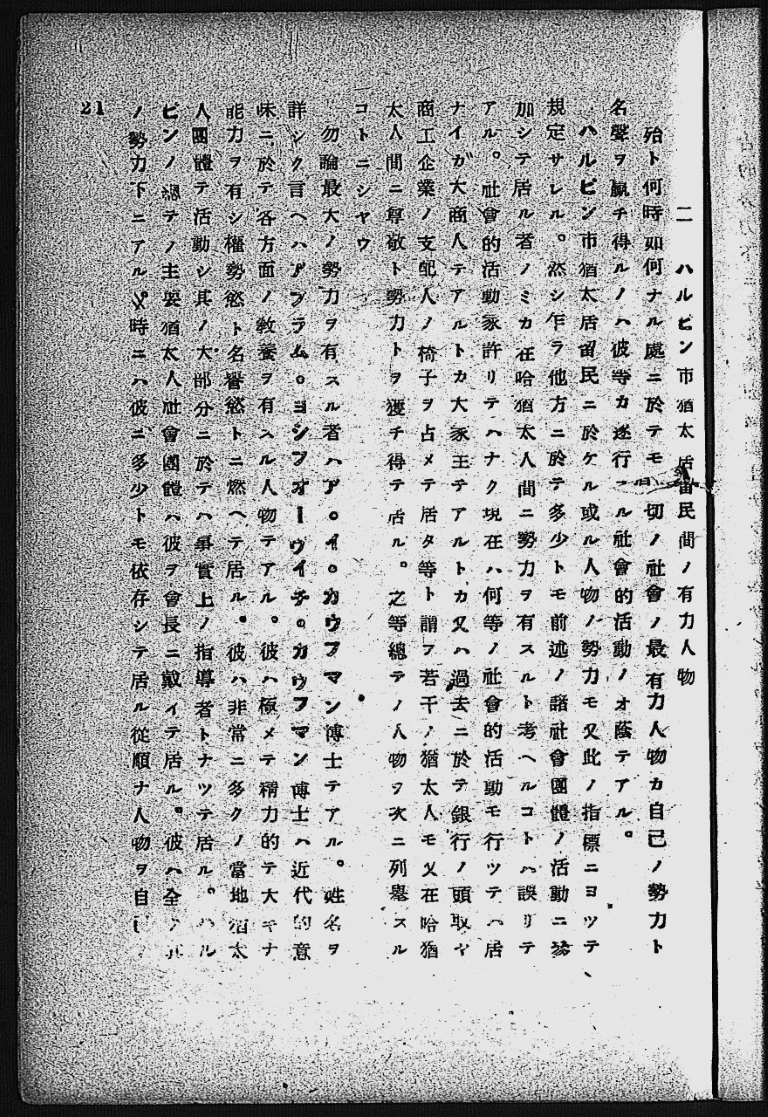 二 ハルビン市猶太居留民間ノ有力人物
殆ト何時如何ナル處ニ於テモ一切ノ社會ノ最有力人物カ自己ノ勢力ト
名聲ヲ贏チ得ルノハ彼等カ遂行スル社會的活動ノオ蔭テアル。
ハルビン市猶太居留民ニ於ケル或ル人物ノ勢力モ又此ノ指標ニヨツテ、
規定サレル。然シ乍ラ他方ニ於テ多少トモ前述ノ諸社會團體ノ活動ニ參
加シテ居ル者ノミカ在哈猶太人間ニ勢力ヲ有スルト考ヘルコトハ誤リテ
アル。社會的活動家許リテハナク現在ハ何等ノ社會的活動モ行ツテハ居
ナイガ大商人テアルトカ大家主テアルトカ又ハ過去ニ於テ銀行ノ頭取ヤ
商工企業ノ支配人ノ椅子ヲ占メテ居タ等ト謂フ若干ノ猶太人モ又在哈猶
太人間ニ尊敬ト勢力トヲ獲チ得テ居ル。之等總テノ人物ヲ次ニ列擧スル
コトニシヤウ
勿論最大ノ勢力ヲ有スル者ハア。イ。カウフマン博士テアル。姓名ヲ
詳シク言ヘハアブラム。ヨシフオーウイチ。カウフマン博士ハ近代的意
味ニ於テ各方面ノ敎養ヲ有スル人物テアル。彼ハ極メテ精力的テ大キナ
能力ヲ有シ權勢慾ト名譽慾トニ燃ヘテ居ル。彼ハ非常ニ多クノ當地猶太
人團體テ活動シ其ノ大部分ニ於テハ事實上ノ指導者トナツテ居ル。ハル
ビンノ總テノ主要猶太人社會團體ハ彼ヲ會長ニ戴イテ居ル。彼ハ全ク其
ノ勢力下ニアル。時ニハ彼ニ多少トモ依存シテ居ル從順ナ人物ヲ自己
21